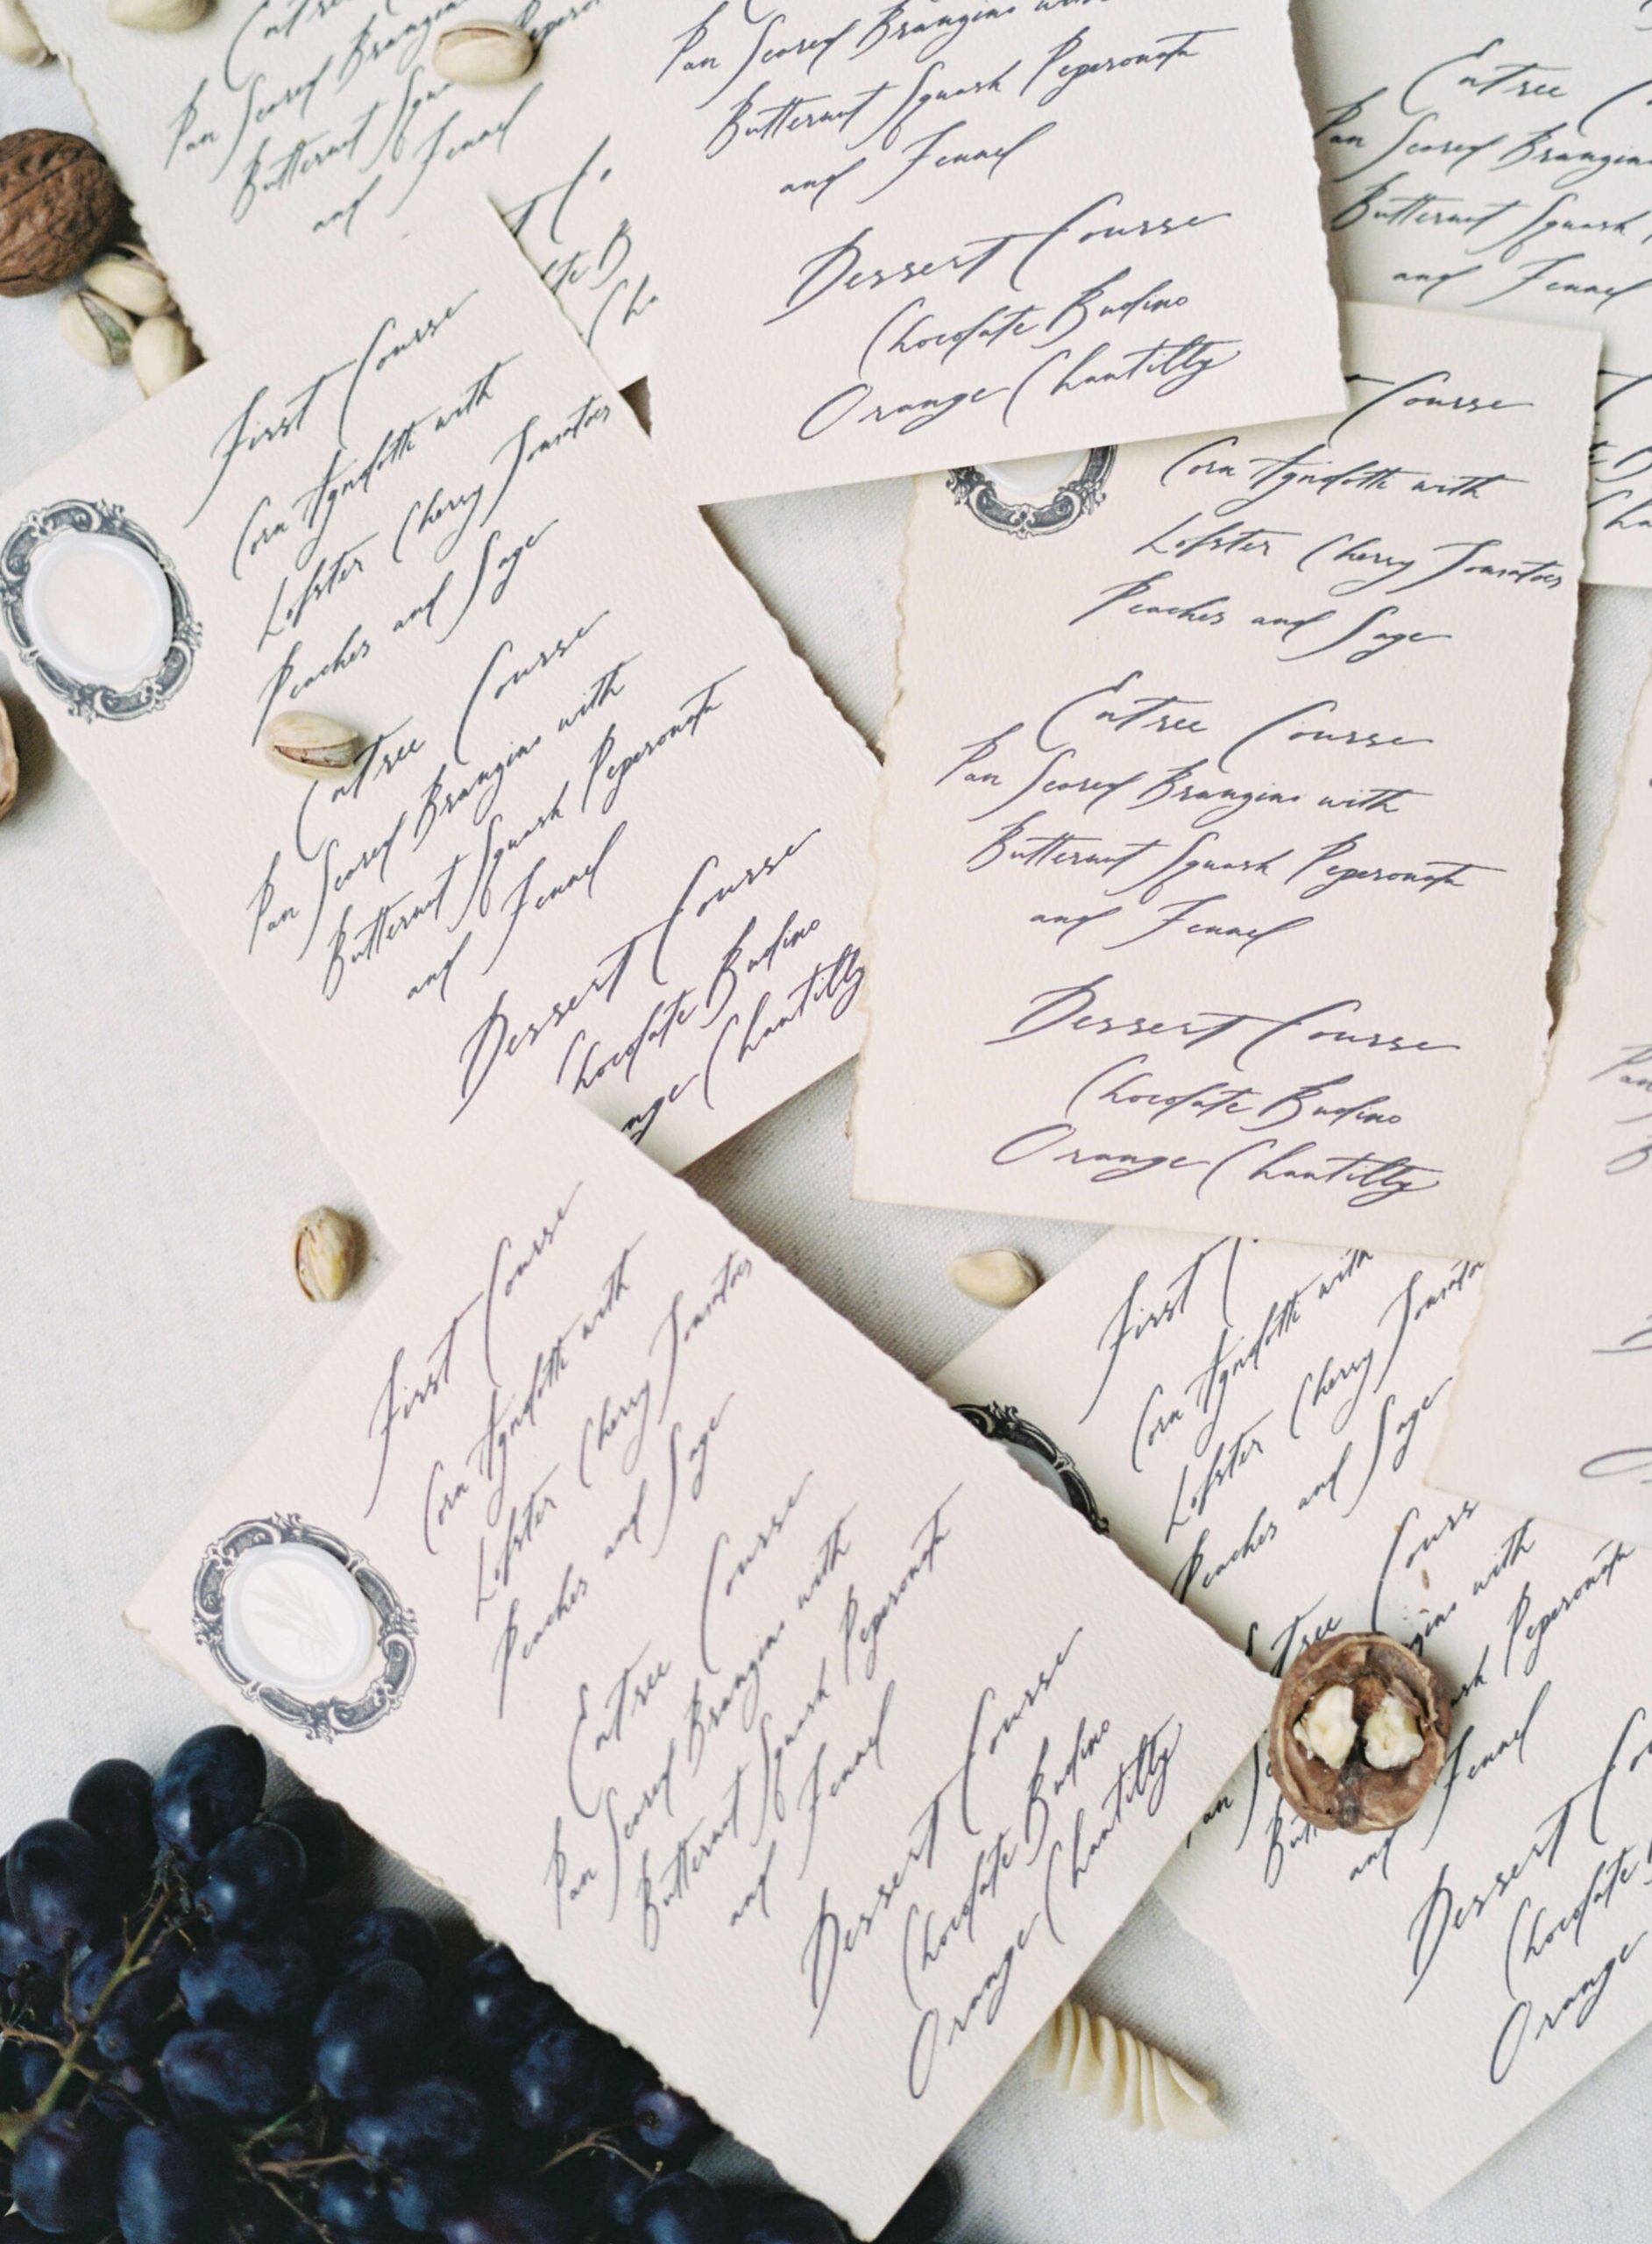 Entree
Pan Seared Branzino
Butternut
and Fennel
Pan Seared Branzino with
Butternut Squash Peperonata
and Fennel
Dessert Course
Chocolate Budino
Orange Chantilly
Entree
Pan Seared Branzino
Butternut Squash
and Fennel
First Course
Corn Agnolotti with
Lobster Cherry Tomatoes
Peaches and Sage
Entree Course
Pan Seared Branzino with
Butternut Squash Peperonata
and Fennel
Dessert Course
Chocolate Budino
Orange Chantilly
Course
Corn Agnolotti with
Lobster Cherry Tomatoes
Peaches and Sage
Entree Course
Pan Seared Branzino with
Butternut Squash Peperonata
and Fennel
Dessert Course
Chocolate Budino
Orange Chantilly
First Course
Corn Agnolotti with
Lobster Cherry Tomatoes
Peaches and Sage
Entree Course
Pan Seared Branzino with
Butternut Squash Peperonata
and Fennel
Dessert Course
Chocolate Budino
Orange Chantilly
First
Corn Agnolotti with
Lobster Cherry
Peaches and Sage
Entree
with
Peperonata
and Fennel
Dessert
Chocolate
Orange